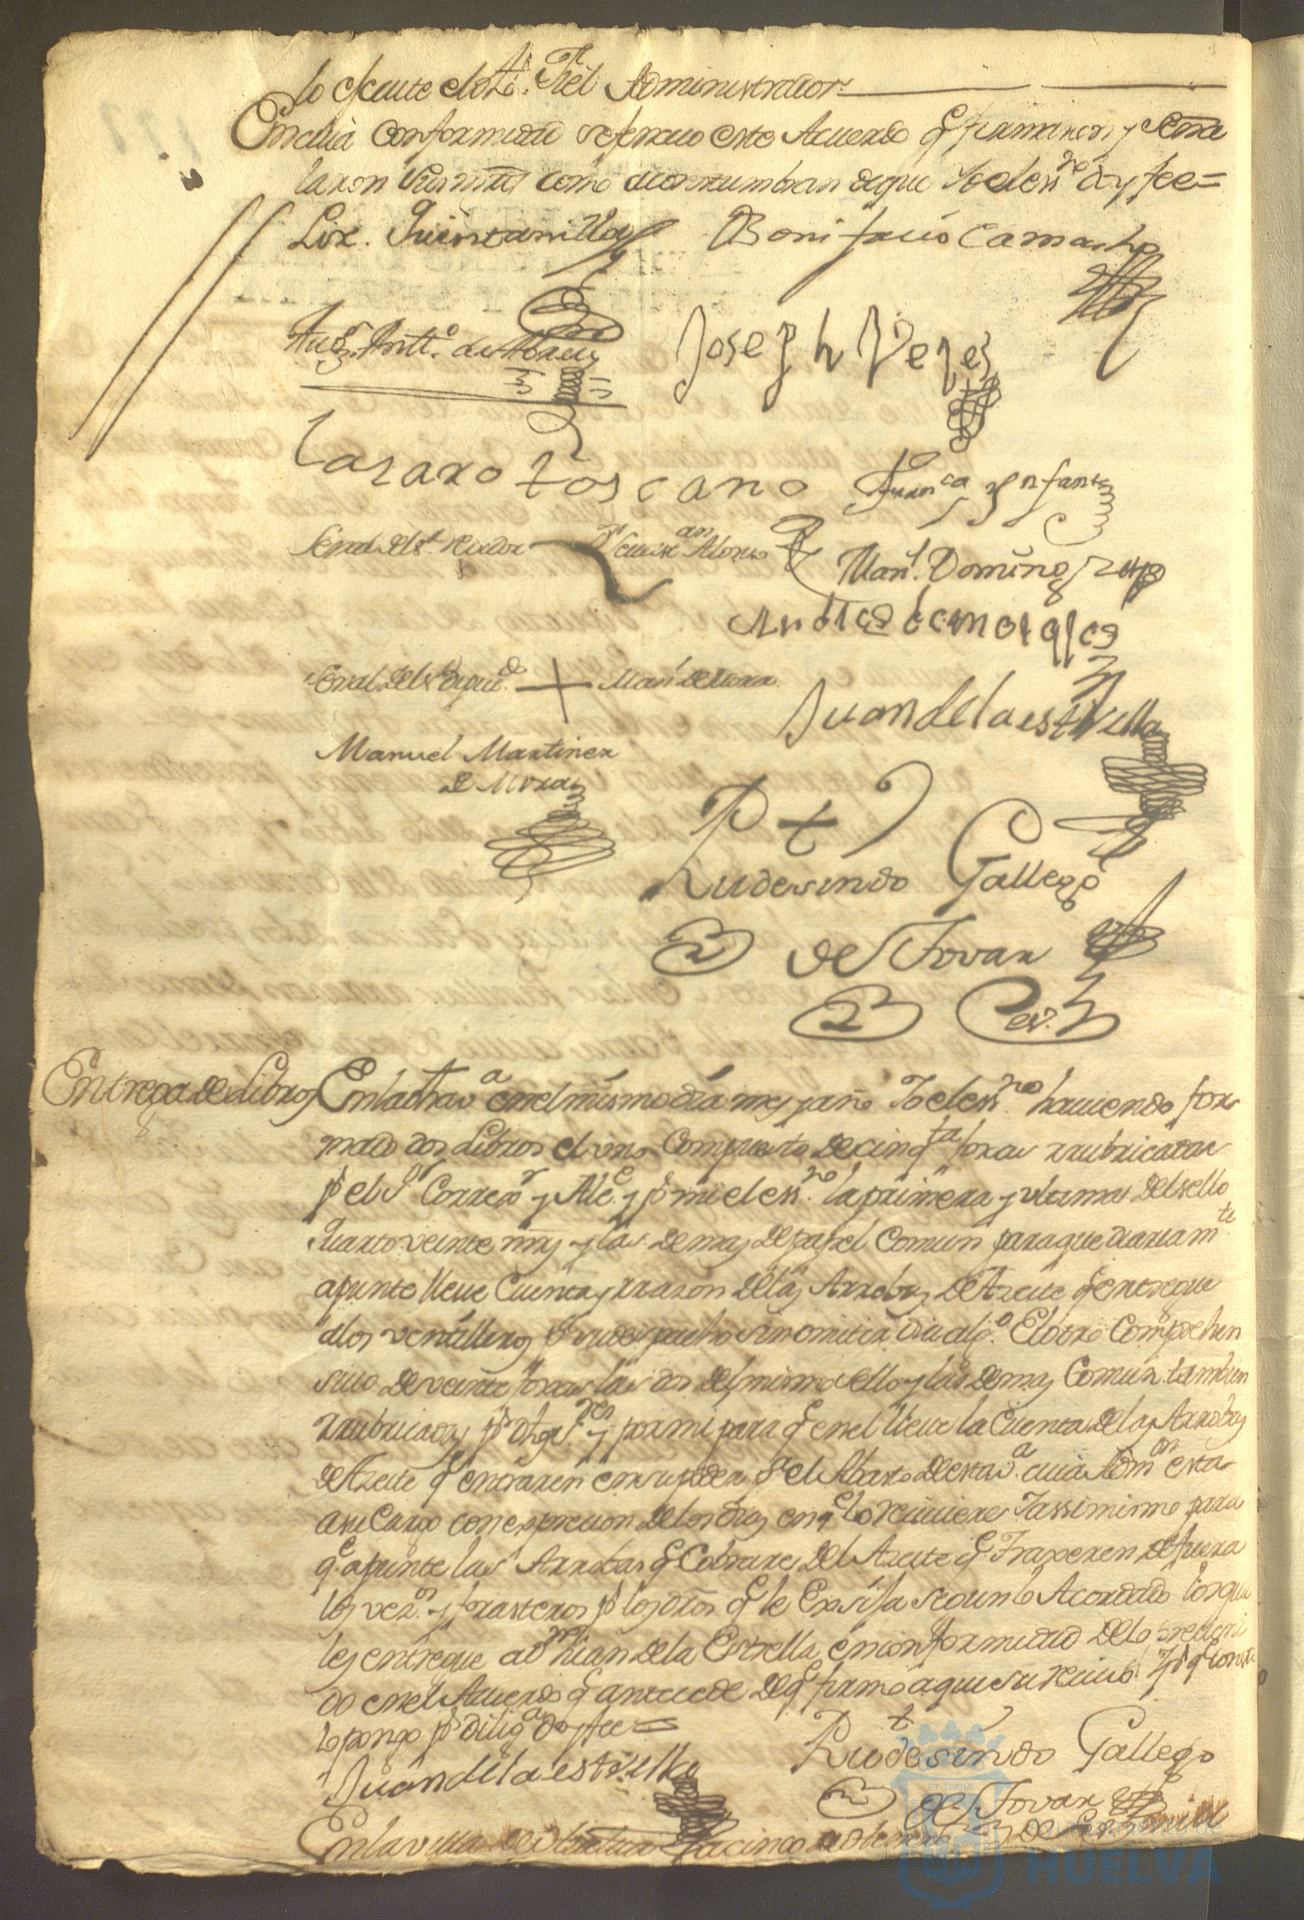 lo execute el dho Fiel Administrador
En cuia conformidad se fenecio este Acuerdo q firmaron y seña
laron sus mrds como acostumbran de que Yo el ess.no doy fee=
Lix. Quintanilla Bonifacio Camacho
Aug.n Antt.o de Abreu Joseph Vezes
Lazaro Toscano Fran.ca Ynfante
Señal del s.r rexidor Sevastian Alonso
Man.l Doming
Andres de morales
Señal del s.r Diputd.o + Man.l de Mora
Juan de la estrella
Manuel Martinez
de Mora
Rudesindo Gallego
de Tovar
Esv.
Entrega de Libros En la dha v.a en el mismo dia mes y año Yo el ess.no haviendo for
mado dos Libros el uno Compuesto de cinq.ta foxas rrubricadas
p.r el S.or Correx.or y Alc.e y p.r mi el ess.no la primera y vltima del sello
quarto veinte mrs y las demas de papel Comun para que diariam.te
apunte lleve Cuenta y rrazon de las Arrobas de Azeite q entregue
a los ventilleros p.a su despacho sin omitir dia alg.o El otro Comprehen
sivo de veinte foxas las dos del mismo sello y las demas Comun tambien
rrubricadas p.r dhos S.res y por mi para q en el lleve la Cuenta de las Arrobas
de Azeite q entraren en su poder p.a el Abasto de esta v.a cuia Adm.on esta
a su Cargo con expresion de los dias en q.e lo reciviere Y assimismo para
q.e apunte las Arrobas q Cobrare del Azeite q Traxeren de fuera
los vez.os y forasteros p.r los dros q se le Exsija segun lo Acordado los qua
les entregue a Juan de la Estrella en conformidad de lo preveni
do en el Acuerdo q antecede de q firmo aqui su recivo. Y p.a q conste
lo pongo p.r dilig.a doy fee=
Juan de la estrella Rudesindo Gallego
de Tovar
En la villa de a cinco de
ET TERRA
HUELVA